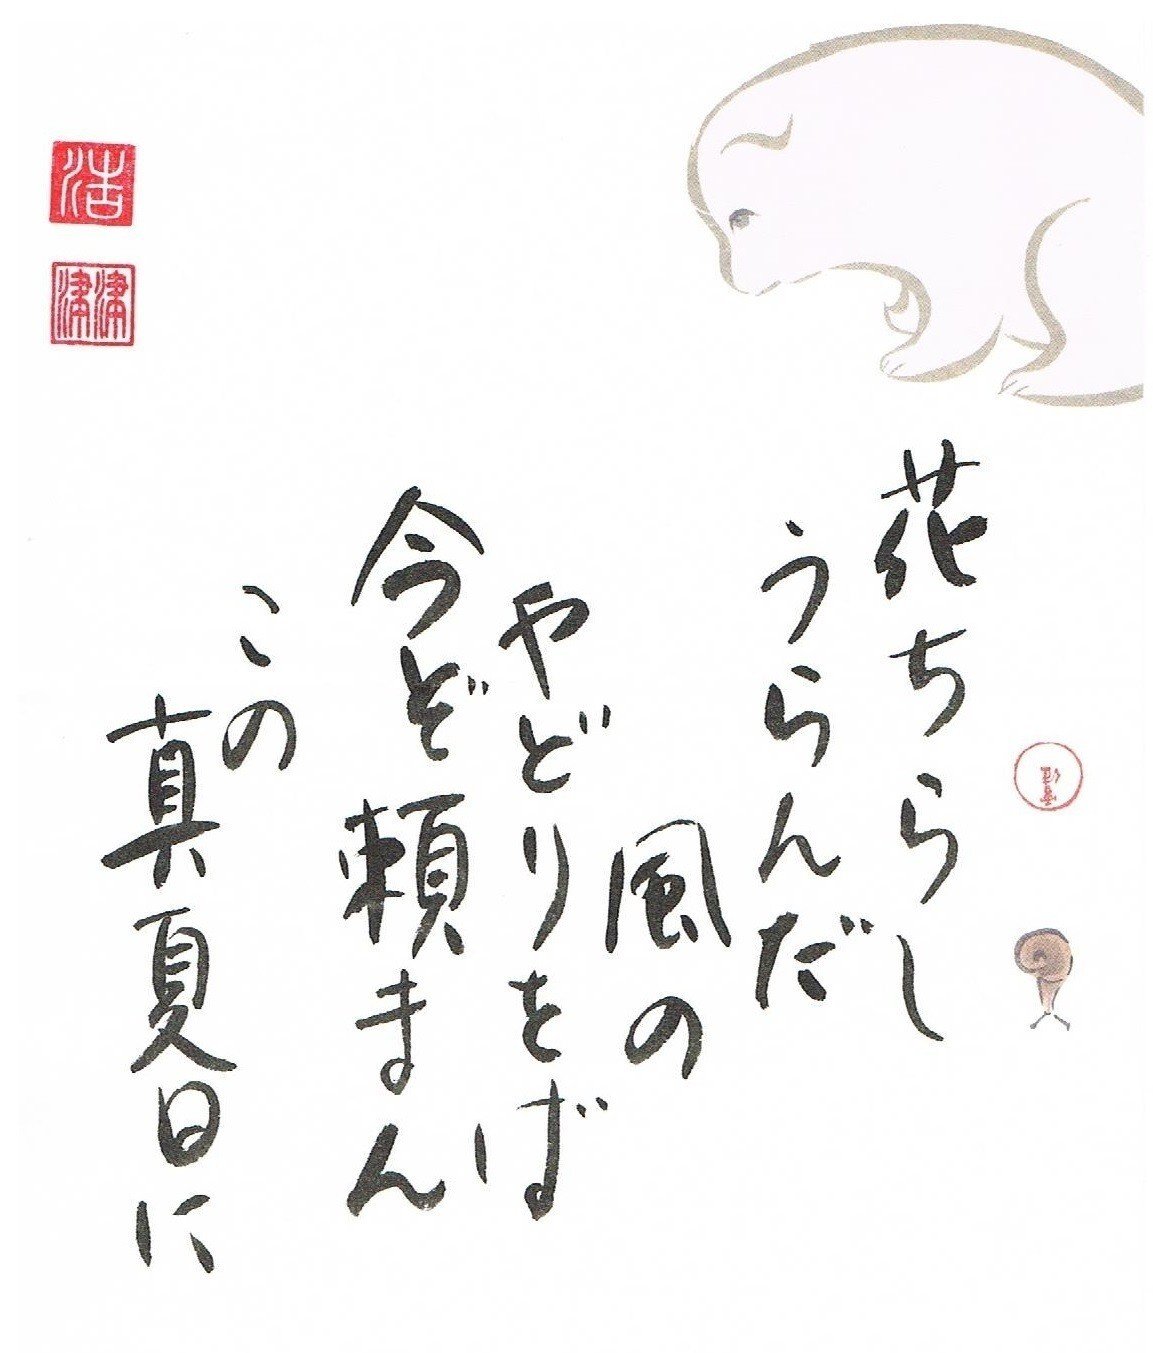 花ちらし
うらんだ
風の
やどりをば
今ぞ頼まん
この
真夏日に
浩